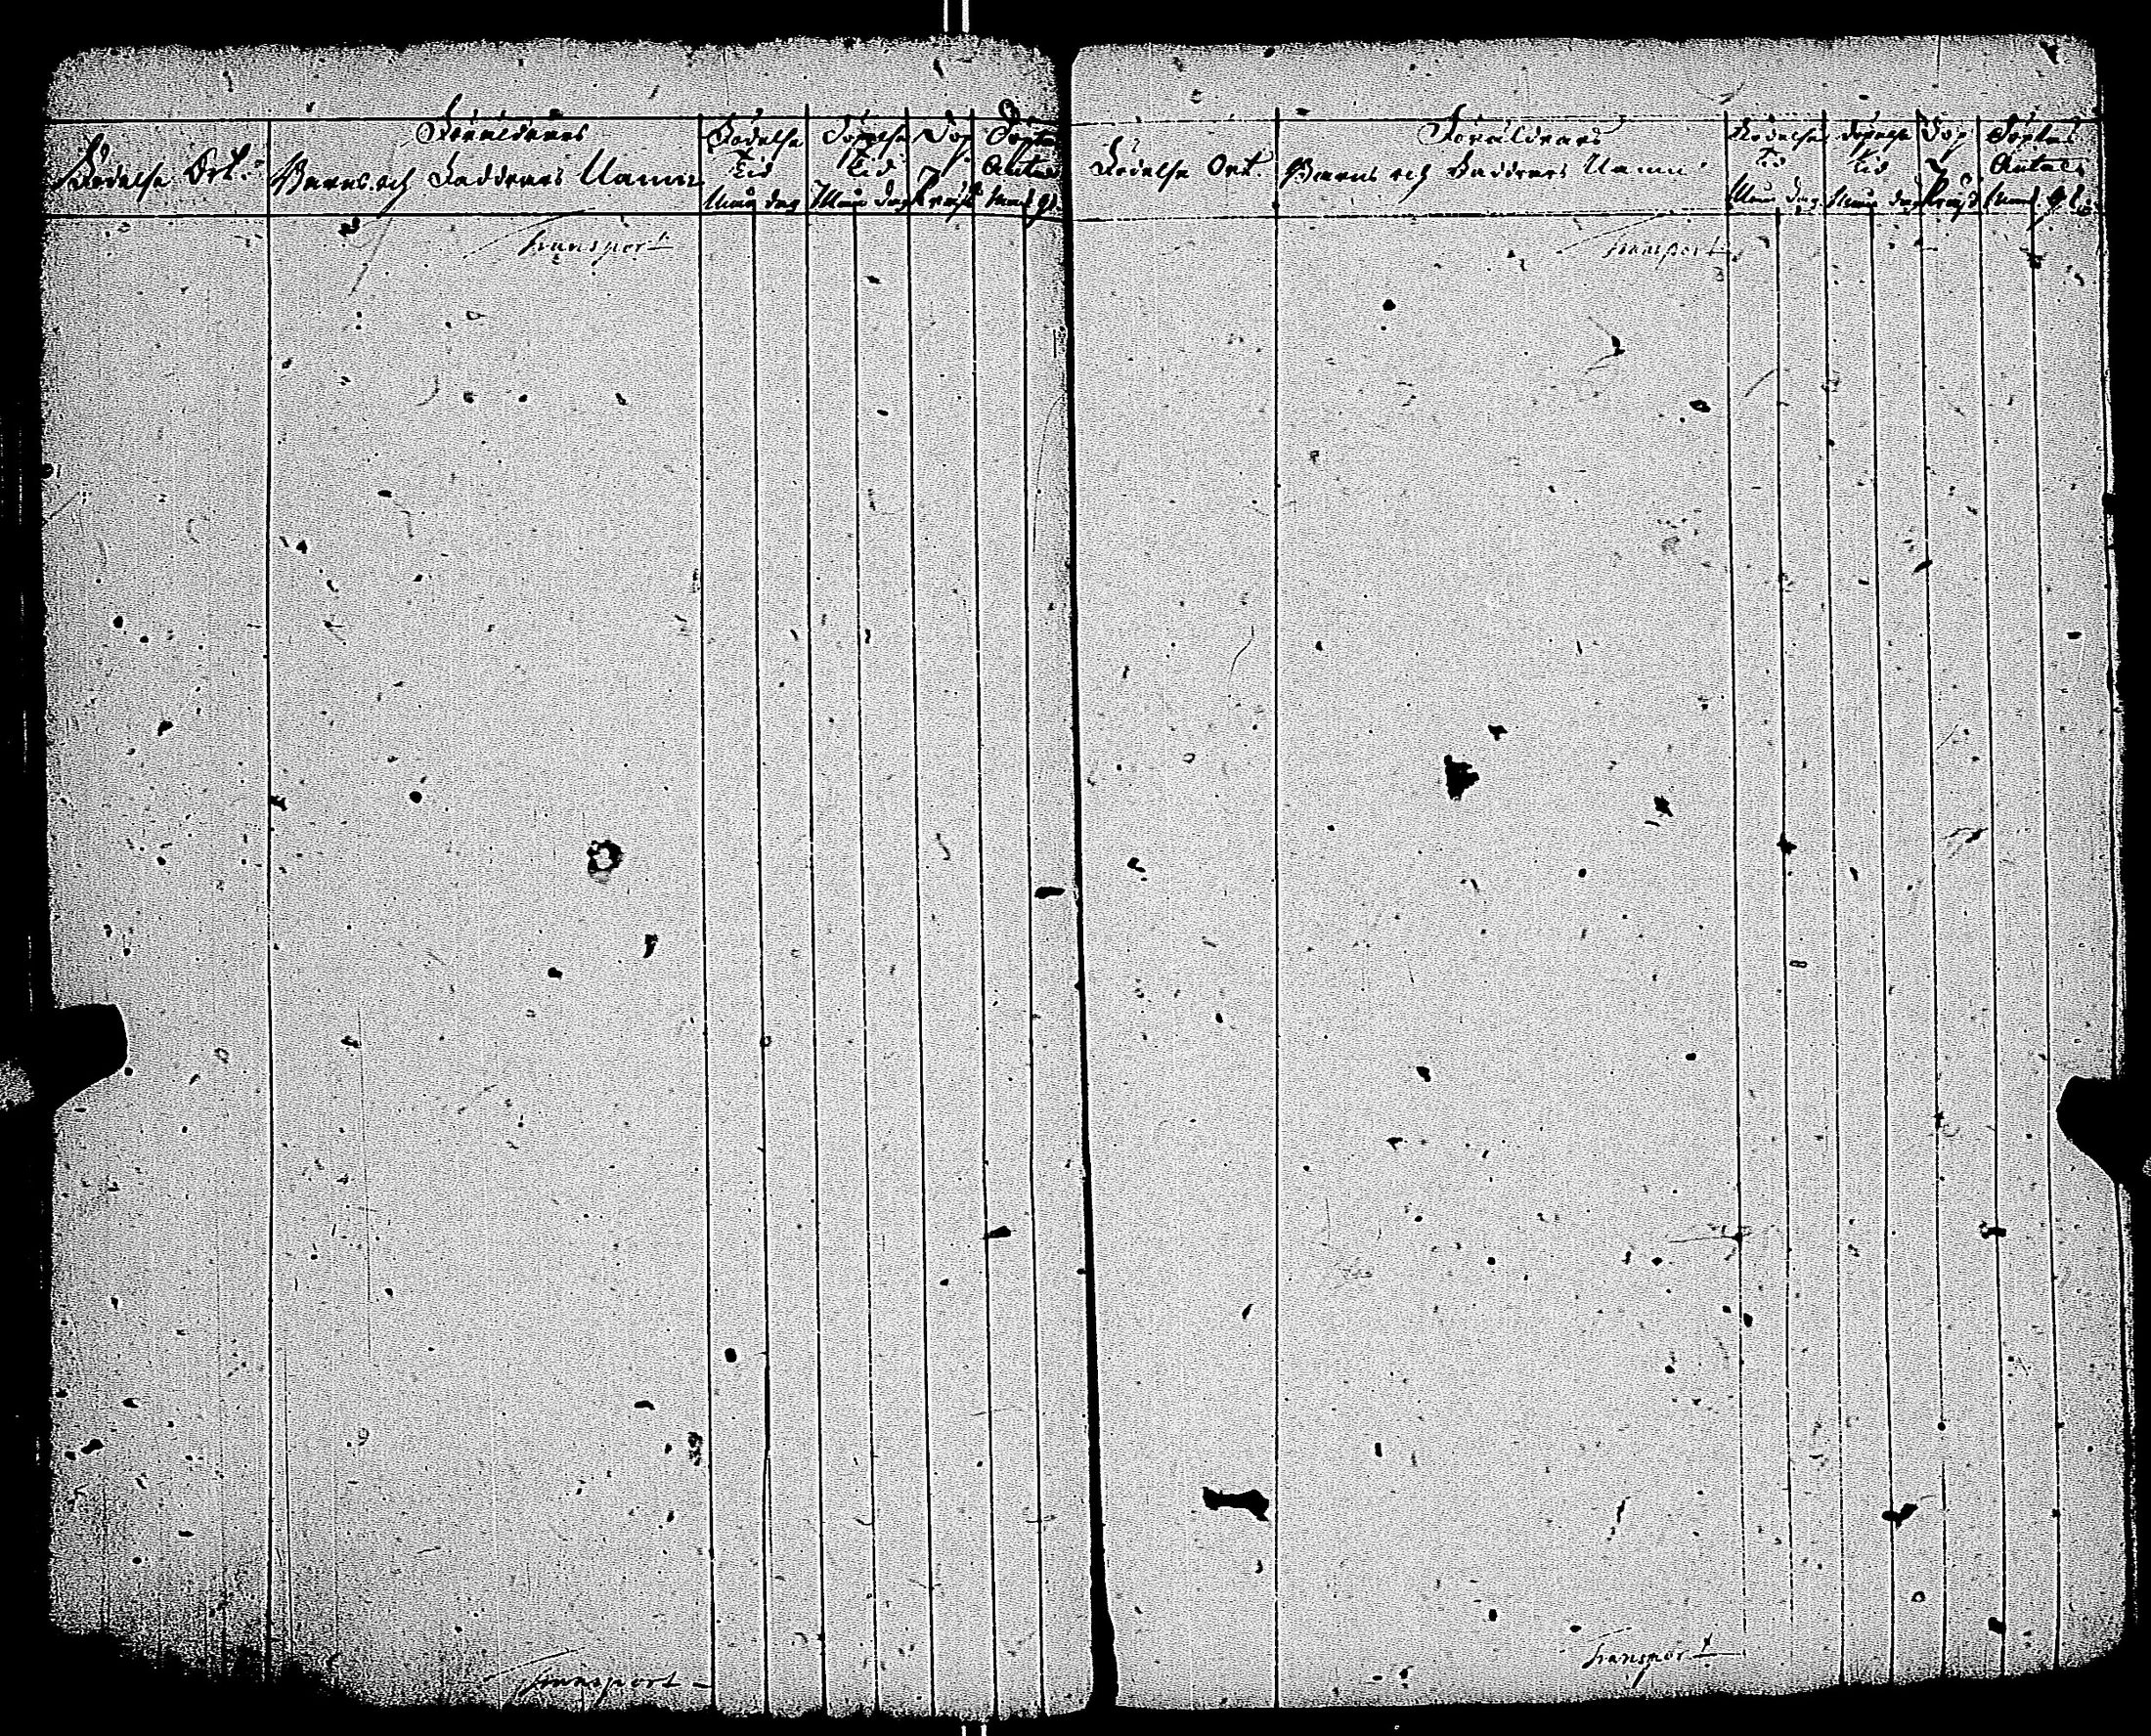 Födelse Ort.
Föräldrars
Barns och Faddrars Namn
Födelse
Tid
Mån dag
Döpelse
Tid
Mån dag
Dop
Döptas
Antal
Transport
Transport
Födelse Ort.
Föräldrars
Barns och Faddrars Namn
Födelse
Tid
Mån dag
Döpelse
Tid
Mån dag
Dop
Döptas
Antal
Transport
Transport